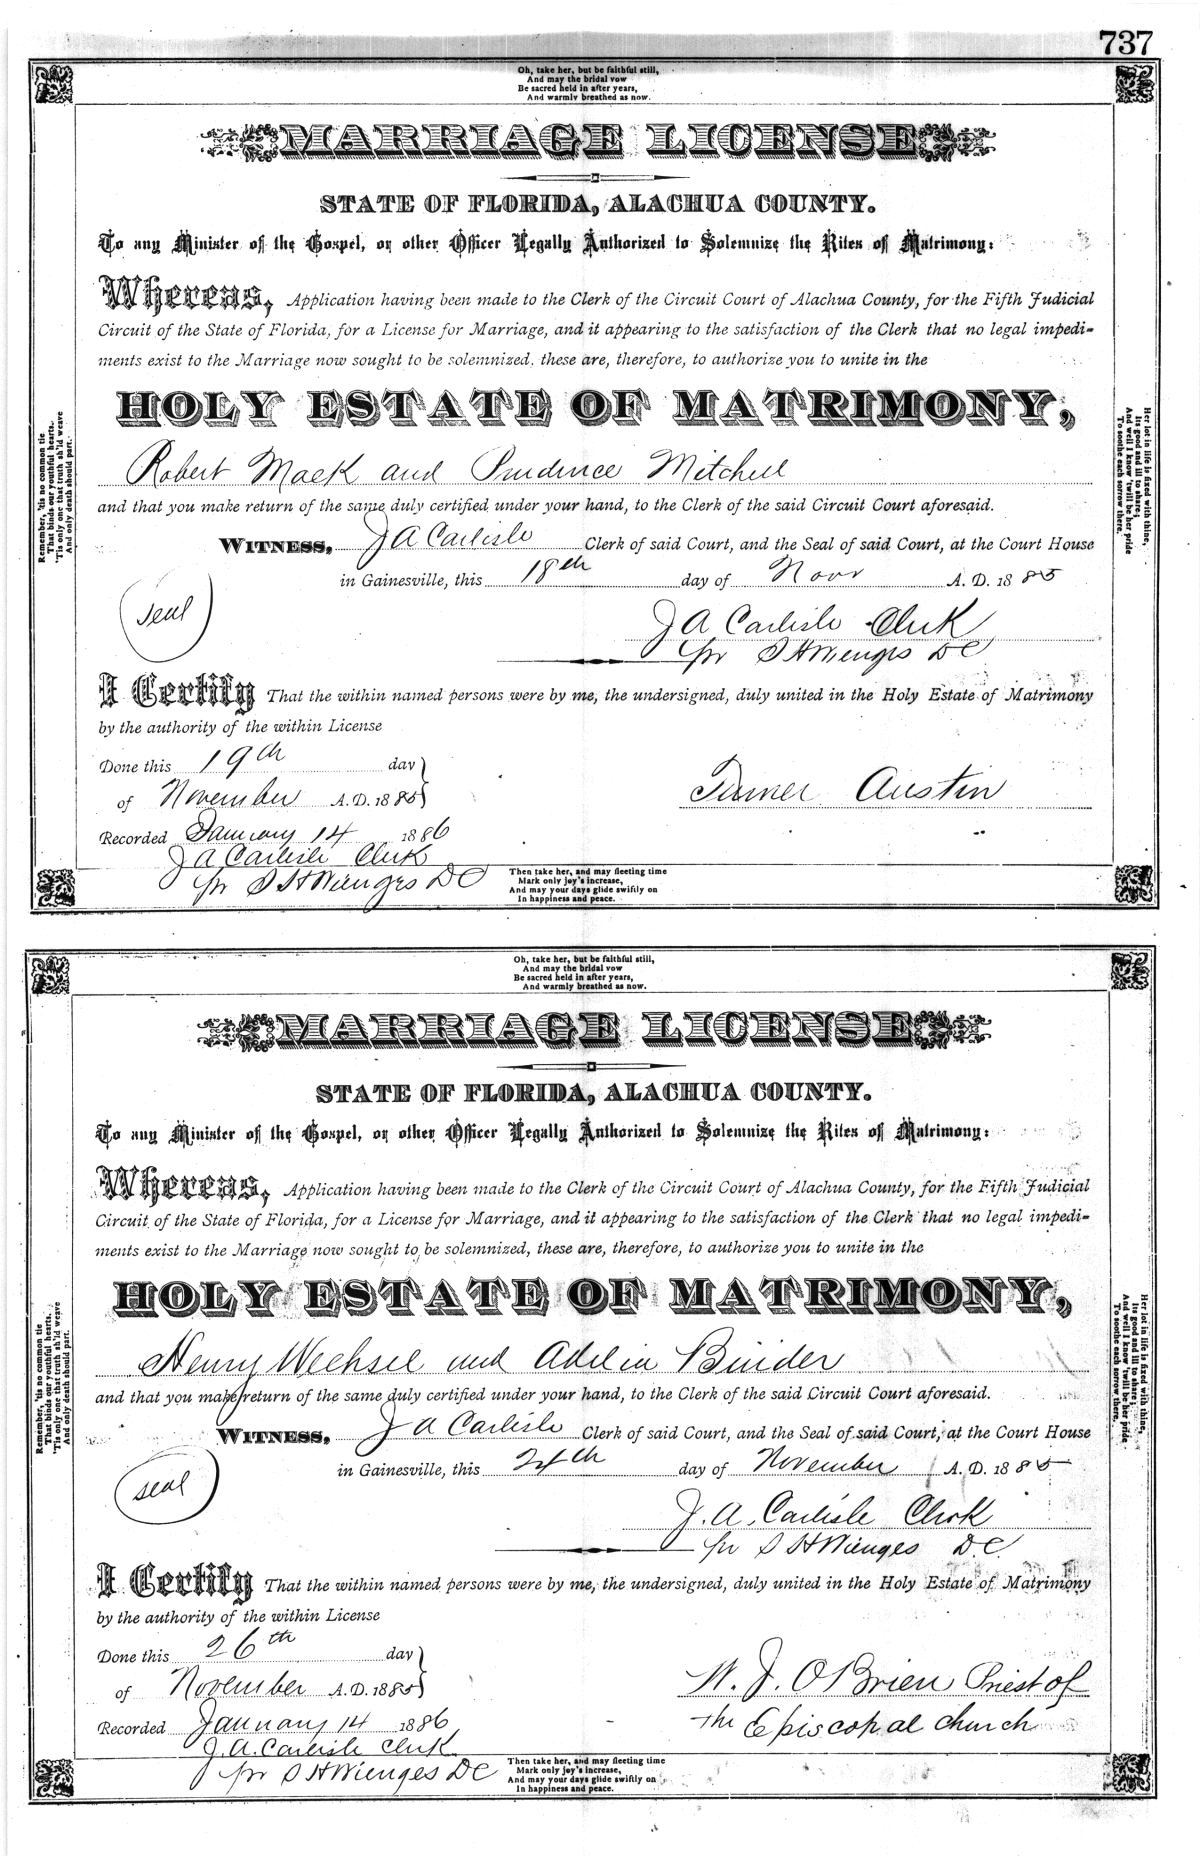 737
Oh, take her, but be faithful still,
And may the bridal vow
Be sacred held in after years,
And warmly breathed as now.
MARRIAGE LICENSE
STATE OF FLORIDA, ALACHUA COUNTY.
To any Minister of the Gospel, or other Officer Legally Authorized to Solemnize the Rites of Matrimony:
Whereas, Application having been made to the Clerk of the Circuit Court of Alachua County, for the Fifth Judicial
Circuit of the State of Florida, for a License for Marriage, and it appearing to the satisfaction of the Clerk that no legal impedi-
ments exist to the Marriage now sought to be solemnized, these are, therefore, to authorize you to unite in the
HOLY ESTATE OF MATRIMONY,
Robert Mack and Prudence Mitchell
and that you make return of the same duly certified under your hand, to the Clerk of the said Circuit Court aforesaid.
WITNESS, J A Carlisle Clerk of said Court, and the Seal of said Court, at the Court House
in Gainesville, this 18th day of Novr A. D. 1885
(seal)
J A Carlisle Clerk
pr S H Wienges DC
I Certify That the within named persons were by me, the undersigned, duly united in the Holy Estate of Matrimony
by the authority of the within License
Done this 19th day
of November A. D. 1885
Turner Austin
Recorded January 14 1886
J A Carlisle Clerk
pr S H Wienges DC
Remember, 'tis no common tie
That binds our youthful hearts.
'Tis only one that truth sh'ld weave
And only death should part.
Her lot in life is fixed with thine,
Its good and ill to share;
And well I know 'twill be her pride
To soothe each sorrow there.
Then take her, and may fleeting time
Mark only joy's increase,
And may your days glide swiftly on
In happiness and peace.
Oh, take her, but be faithful still,
And may the bridal vow
Be sacred held in after years,
And warmly breathed as now.
MARRIAGE LICENSE
STATE OF FLORIDA, ALACHUA COUNTY.
To any Minister of the Gospel, or other Officer Legally Authorized to Solemnize the Rites of Matrimony:
Whereas, Application having been made to the Clerk of the Circuit Court of Alachua County, for the Fifth Judicial
Circuit of the State of Florida, for a License for Marriage, and it appearing to the satisfaction of the Clerk that no legal impedi-
ments exist to the Marriage now sought to be solemnized, these are, therefore, to authorize you to unite in the
HOLY ESTATE OF MATRIMONY,
Henry Wechsel and Adelia Binder
and that you make return of the same duly certified under your hand, to the Clerk of the said Circuit Court aforesaid.
WITNESS, J A Carlisle Clerk of said Court, and the Seal of said Court, at the Court House
in Gainesville, this 24th day of November A. D. 1885
(seal)
J. A. Carlisle Clerk
pr S H Wienges D.C.
I Certify That the within named persons were by me, the undersigned, duly united in the Holy Estate of Matrimony
by the authority of the within License
Done this 26th day
of November A. D. 1885
W. J. O'Brien Priest of
the Episcopal church
Recorded January 14 1886
J. A. Carlisle Clerk
pr S H Wienges DC
Remember, 'tis no common tie
That binds our youthful hearts.
'Tis only one that truth sh'ld weave
And only death should part.
Her lot in life is fixed with thine,
Its good and ill to share;
And well I know 'twill be her pride
To soothe each sorrow there.
Then take her, and may fleeting time
Mark only joy's increase,
And may your days glide swiftly on
In happiness and peace.